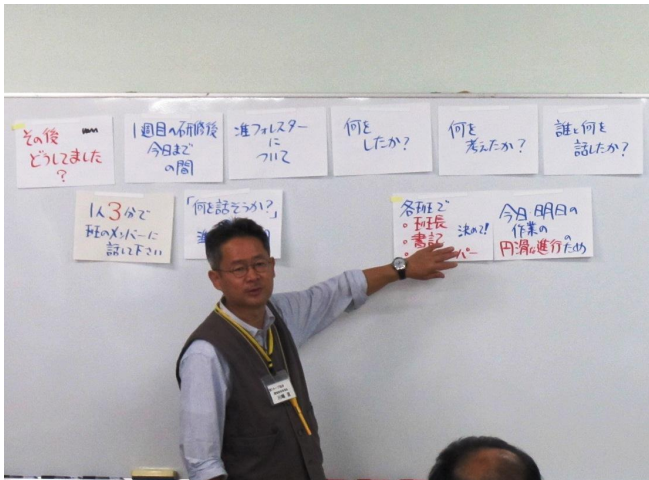 その後
どうしてました
?
1週目の研修後
今日まで
の間
准フォレスター
に
ついて
何を
したか?
何を
考えたか?
誰と何を
話したか?
1人3分で
班のメンバーに
話して下さい
「何を話そうか?」
各班で
・班長
・書記
決めて!
今日・明日の
作業の
円滑な進行のため